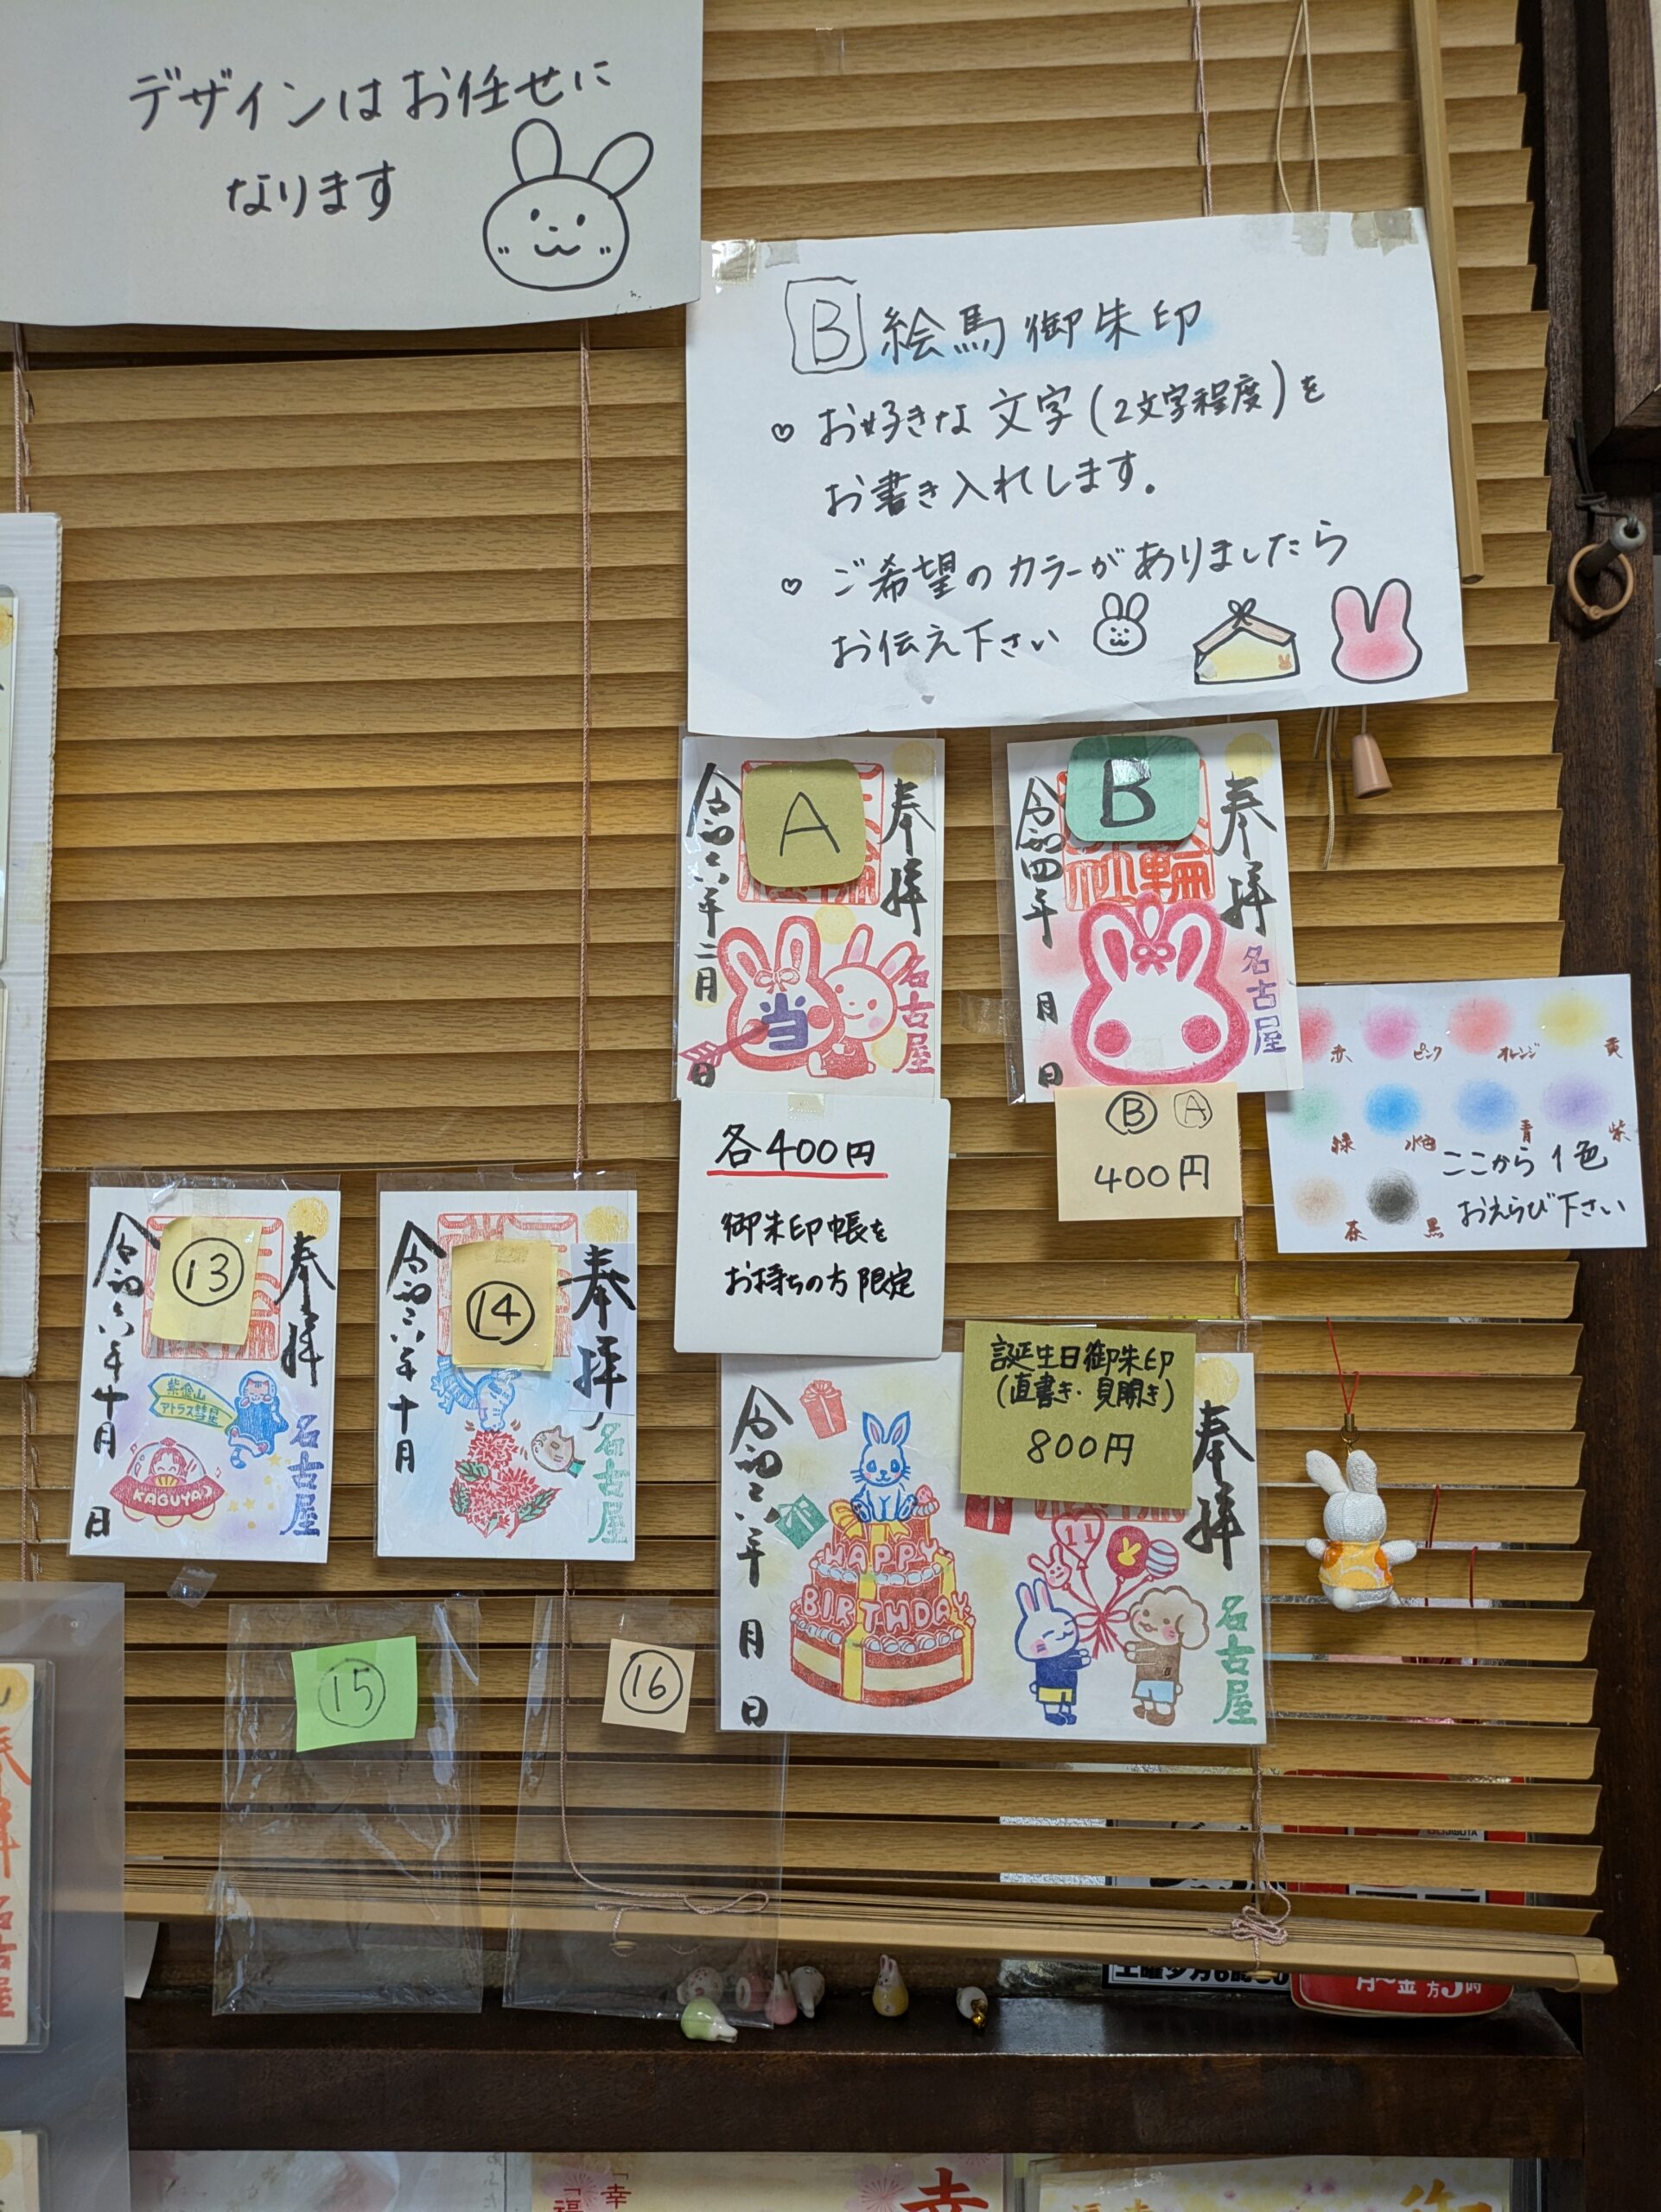 デザインはお任せに
なります
B 絵馬御朱印
♡ お好きな文字(2文字程度)を
お書き入れします。
♡ ご希望のカラーがありましたら
お伝え下さい
奉拝
A
当
名古屋
令和六年二月
日
奉拝
B
輪
名古屋
令和四年
月
日
各400円
御朱印帳を
お持ちの方限定
Ⓑ Ⓐ
400円
赤 ピンク オレンジ 黄
緑 水色 青 紫
茶 黒
ここから1色
おえらび下さい
奉拝
⑬
紫金山
アトラス彗星
KAGUYA
名古屋
令和六年十月
日
奉拝
⑭
名古屋
令和六年十月
誕生日御朱印
(直書き・見開き)
800円
奉拝
HAPPY
BIRTHDAY
11
名古屋
令和六年
月
日
⑮
⑯
月〜金
5時
名古屋
「幸
福
幸